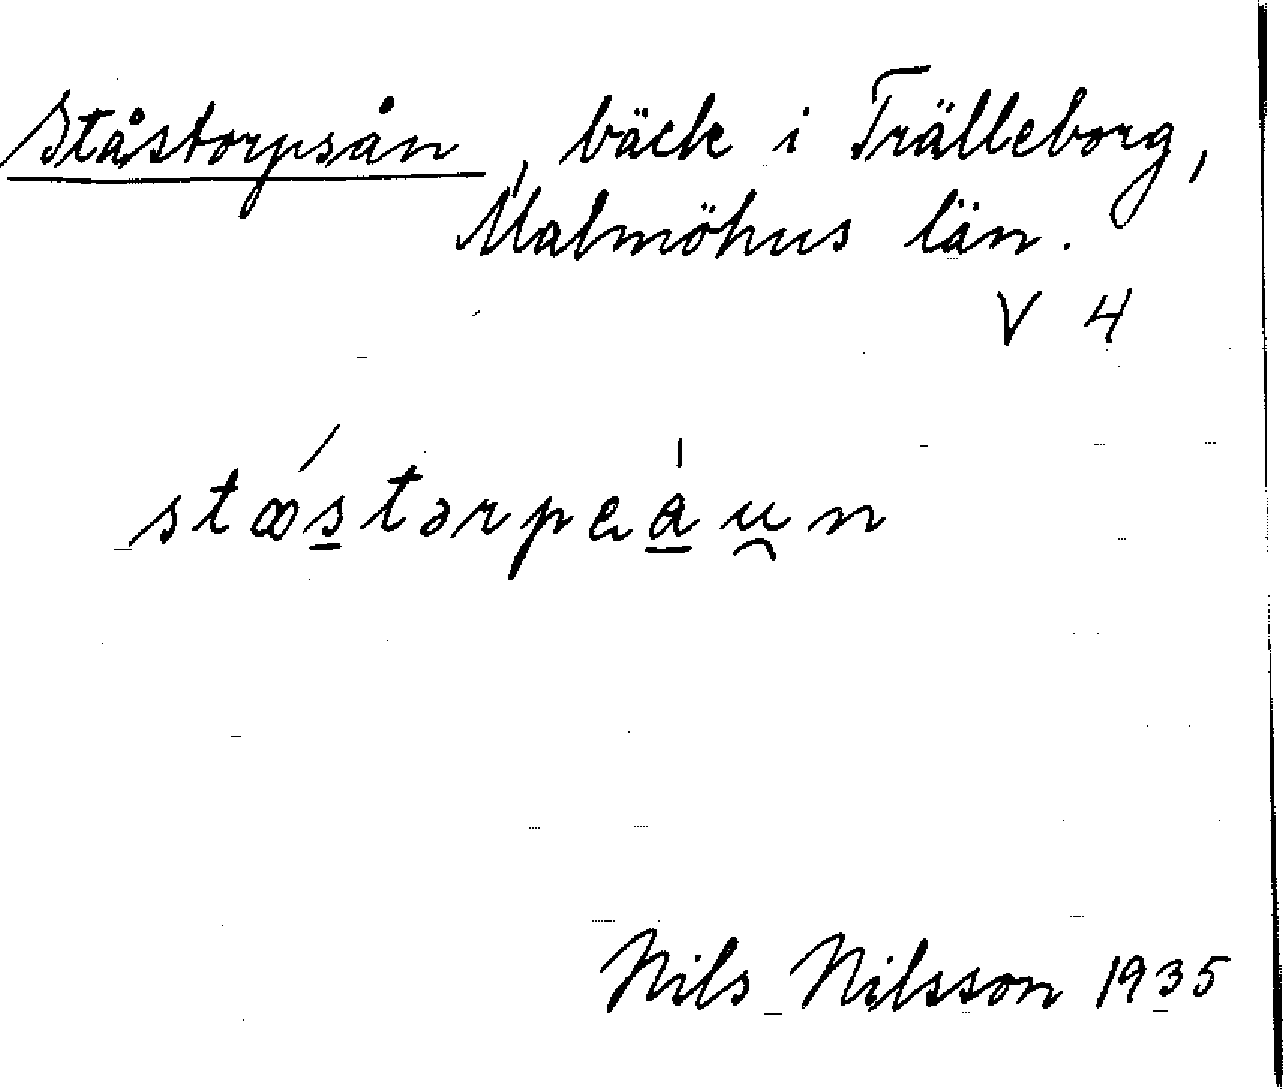 Ståstorpsån, bäck i Trälleborg,
Malmöhus län.
V 4
stœ́s̲tərpea̲̍u̯n
Nils Nilsson 1935